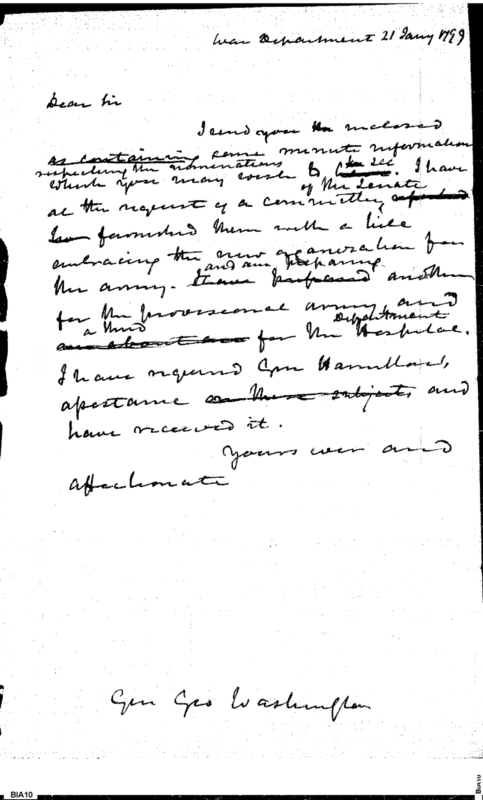 War Department 21 Jany 1799
Dear Sir
I send you the inclosed
as containing some minute information
respecting the nominations
which you may wish to to see. I have
of the Senate
at the request of a committee,
furnished them with a bill
embracing the new organization for
and am preparing
the army. I have prepared another
for the provisional army, and
a third Department
for the Hospital.
I have required Gen Hamilton's
assistance on these subjects and
have received it.
Yours ever and
affectionate
Gen Geo Washington
BIA10
BIA10